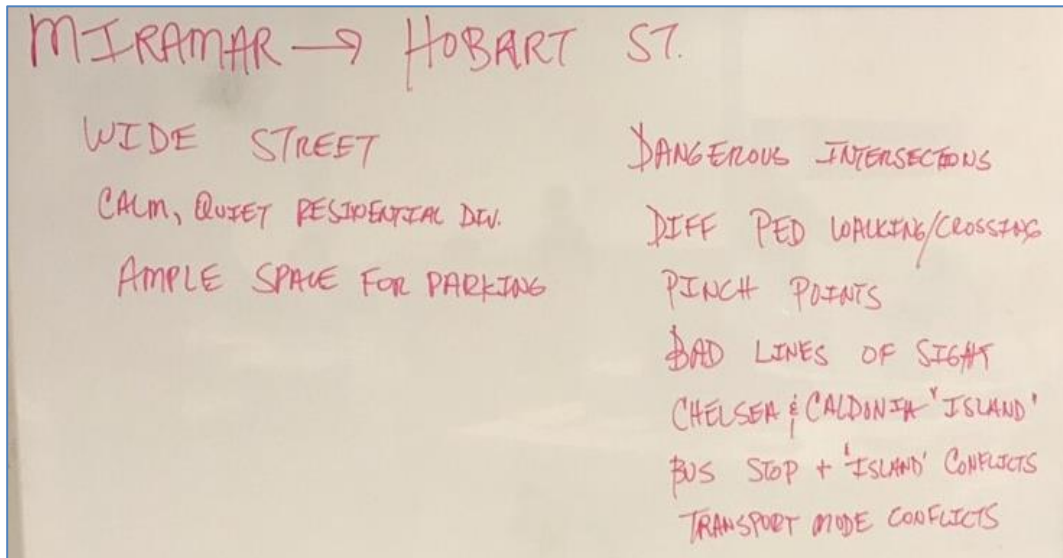 MIRAMAR → HOBART ST.
WIDE STREET
CALM, QUIET RESIDENTIAL DIV.
AMPLE SPACE FOR PARKING
DANGEROUS INTERSECTIONS
DIFF PED WALKING/CROSSING
PINCH POINTS
BAD LINES OF SIGHT
CHELSEA & CALDONIA "ISLAND'
BUS STOP + 'ISLAND' CONFLICTS
TRANSPORT MODE CONFLICTS